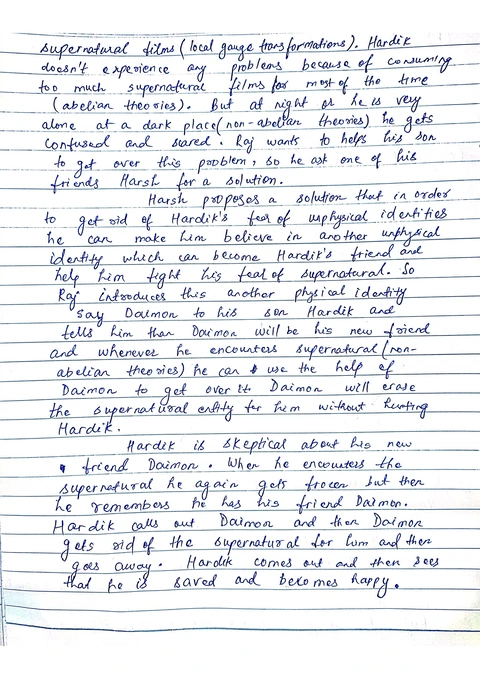 supernatural films (local gauge transformations). Hardik
doesn't experience any problems because of consuming
too much supernatural films for most of the time
(abelian theories). But at night or he is very
alone at a dark place (non-abelian theories) he gets
confused and scared. Raj wants to helps his son
to get over this problem, so he ask one of his
friends Harsh for a solution.
Harsh proposes a solution that in order
to get rid of Hardik's fear of unphysical identities
he can make him believe in another unphysical
identity which can become Hardik's friend and
help him fight his fear of supernatural. So
Raj introduces this another physical identity
say Daimon to his son Hardik and
tells him than Daimon will be his new friend
and whenever he encounters supernatural (non-
abelian theories) he can use the help of
Daimon to get over it Daimon will erase
the supernatural entity for him without hurting
Hardik.
Hardik is skeptical about his new
friend Daimon. When he encounters the
supernatural he again gets frozen but then
he remembers he has his friend Daimon.
Hardik calls out Daimon and then Daimon
gets rid of the supernatural for him and then
goes away. Hardik comes out and then sees
that he is saved and becomes happy.